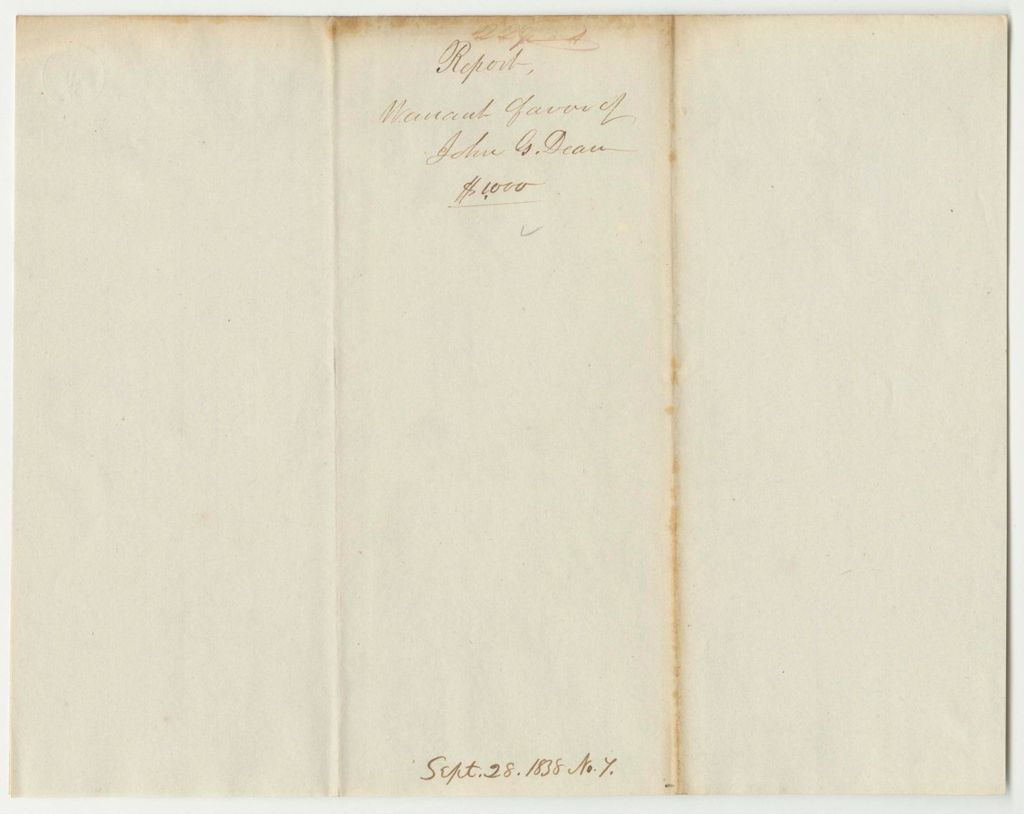 Report,
Warrant favor of
John G. Dean
$1,000
Sept. 28. 1838 No. 7.